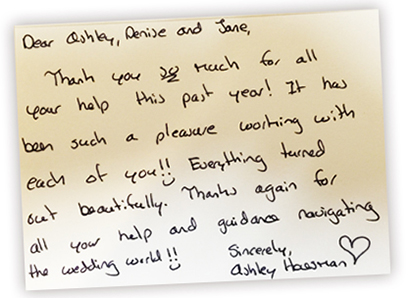 Dear Ashley, Denise and Jane,
Thank you so much for all
your help this past year! It has
been such a pleasure working with
each of you!! Everything turned
out beautifully. Thanks again for
all your help and guidance navigating
the wedding world!!
Sincerely,
Ashley